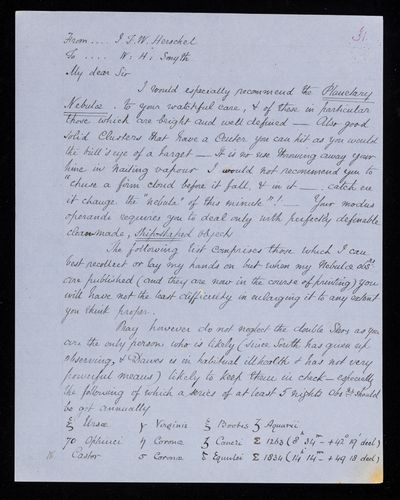 31.
From .... J. F. W. Herschel
To .... W: H: Smyth
My dear Sir
I would especially recommend the Planetary
Nebulæ . to your watchful care, & of these in particular
those which are bright and well defined — Also good
solid Clusters that have a Center you can hit as you would
the bull's eye of a target — It is no use throwing away your
time in hunting vapour I would not recommend you to
"chuse a firm cloud before it fall, & in it — . catch ere
it change the "nebula" of this minute"! — Your modus
operandi requires you to deal only with perfectly definable
clean made, ship-shaped objects
The following list comprises those which I can
best recollect or lay my hands on but when my Nebulæ obsns
are published (and they are now in the course of printing) you
will have not the least difficulty in enlarging it to any extent
you think proper.
Pray however do not neglect the double Stars as you
are the only person who is likely (since South has given up
observing, & Dawes is in habitual ill health & has not very
powerful means) likely to keep them in check — especially
the following of which a series of at least 5 nights Obsns should
be got annually
ξ Ursæ γ Virginis ξ Bootis ζ Aquarii
70 Ophiuci η Coronæ ζ Cancri Σ 1263 (8h 34m – +42° 19' decl)
Castor σ Coronæ Equulei Σ 1834 (14h 14m – +49 18 decl)